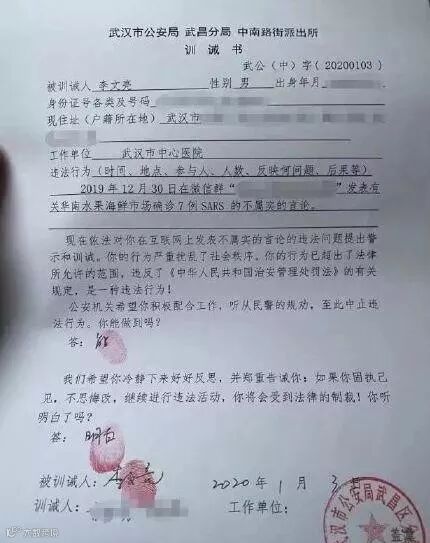 武汉市公安局 武昌分局 中南路街派出所
训诫书
武公（中）字（20200103）
被训诫人 李文亮 性别 男 出身年月
身份证号各类及号码
现住址（户籍所在地） 武汉市
工作单位 武汉市中心医院
违法行为（时间、地点、参与人、人数、反映何问题、后果等）
2019年12月30日在微信群“ ”发表有
关华南水果海鲜市场确诊7例SARS的不属实的言论。
现在依法对你在互联网上发表不属实的言论的违法问题提出警
示和训诫。你的行为严重扰乱了社会秩序。你的行为已超出了法律
所允许的范围，违反了《中华人民共和国治安管理处罚法》的有关
规定，是一种违法行为！
公安机关希望你积极配合工作，听从民警的规劝，至此中止违
法行为。你能做到吗？
答：能
我们希望你冷静下来好好反思，并郑重告诫你：如果你固执己
见，不思悔改，继续进行违法活动，你将会受到法律的制裁！你听
明白了吗？
答：明白
被训诫人：李文亮 2020年1月3日
训诫人： 工作单位：
武汉市公安局武昌区
盖章